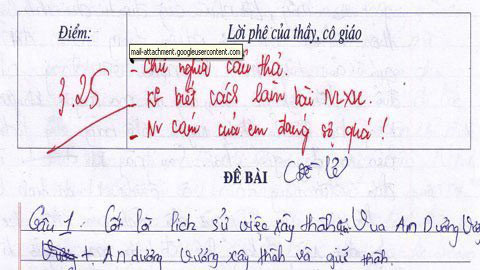 Điểm: Lời phê của thầy, cô giáo
mail-attachment.googleusercontent.com
3.25
- Chữ nghĩa cẩu thả.
- Ko biết cách làm bài NLXH.
- NV cảm xúc em đáng sợ quá!
ĐỀ BÀI
Câu 1: Cốt lõi lịch sử việc xây thành Vua An Dương Vương
+ An dương vương xây thành và giữ thành